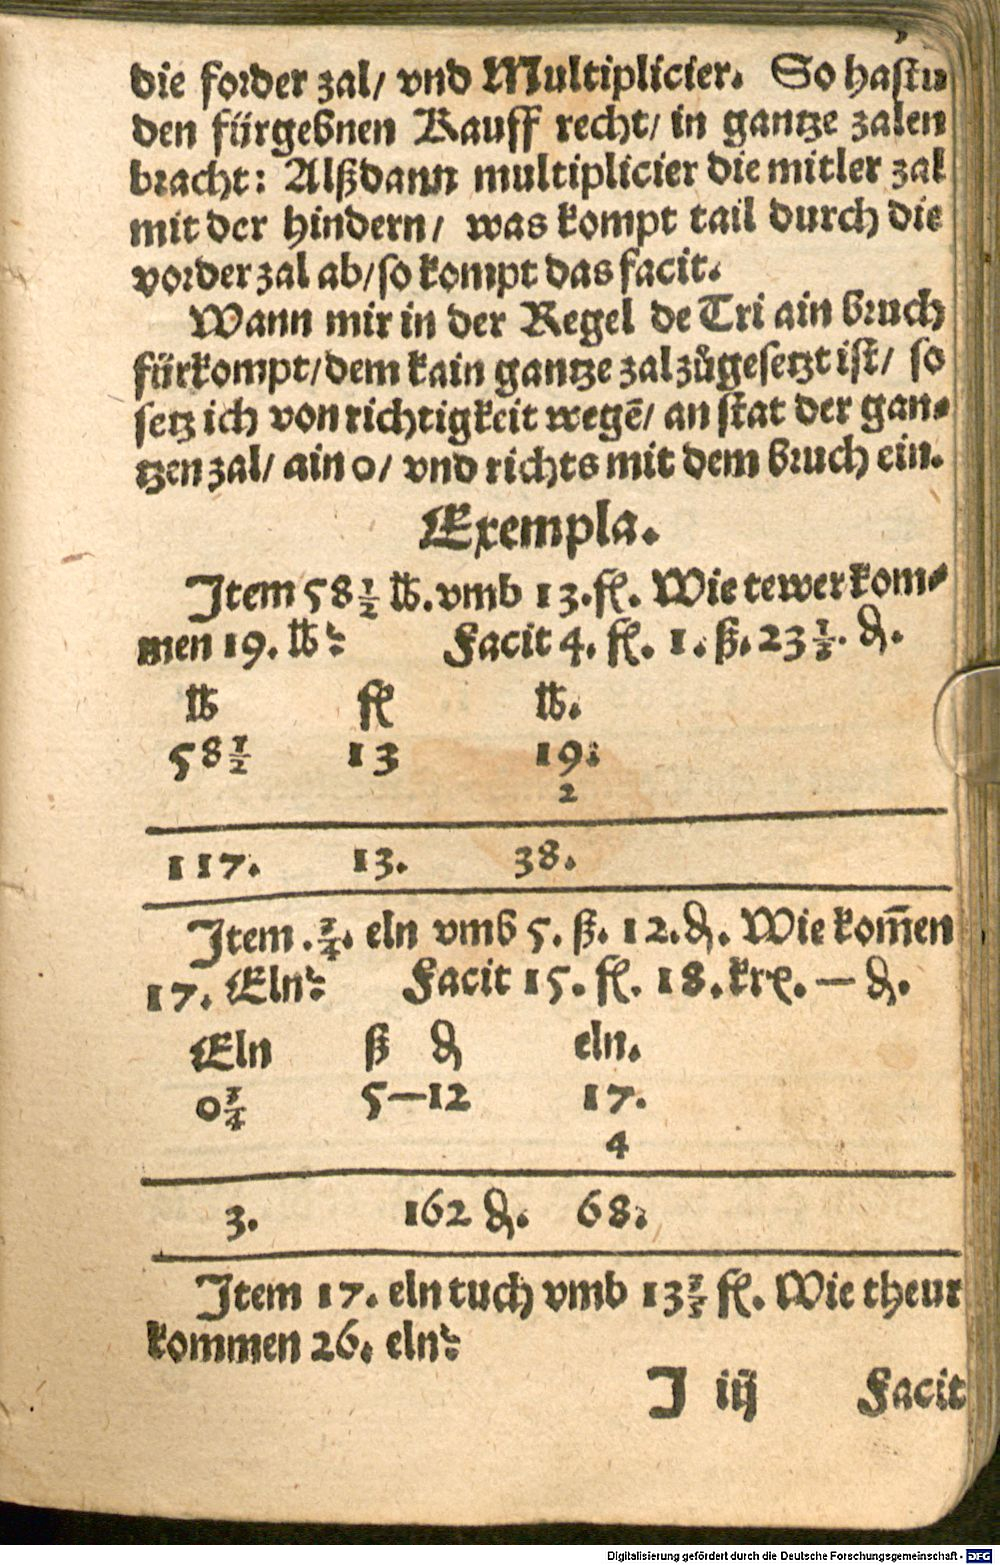 die forder zal/ vnd Multiplicier. So hastu
den fürgebnen Kauff recht/ in gantze zalen
bracht: Alßdann multiplicier die mitler zal
mit der hindern/ was kompt tail durch die
vorder zal ab/ so kompt das facit.
Wann mir in der Regel de Tri ain bruch
fürkompt/ dem kain gantze zal zůgesetzt ist/ so
setz ich von richtigkeit wegē/ an stat der gan⸗
tzen zal/ ain 0/ vnd richts mit dem bruch ein.
Exempla.
Item 58 1/2 ℔. vmb 13. fl. Wie tewer kom⸗
men 19. ℔? Facit 4. fl. 1. ß. 23 1/3. ₰.
℔ fl ℔.
58 1/2 13 19:
2
117. 13. 38.
Item. 3/4. eln vmb 5. ß. 12. ₰. Wie kom̄en
17. Eln? Facit 15. fl. 18. krꝛ. — ₰.
Eln ß ₰ eln.
0 3/4 5—12 17.
4
3. 162 ₰. 68:
Item 17. eln tuch vmb 13 2/5 fl. Wie theur
kommen 26. eln?
J iij Facit
Digitalisierung gefördert durch die Deutsche Forschungsgemeinschaft - DFG